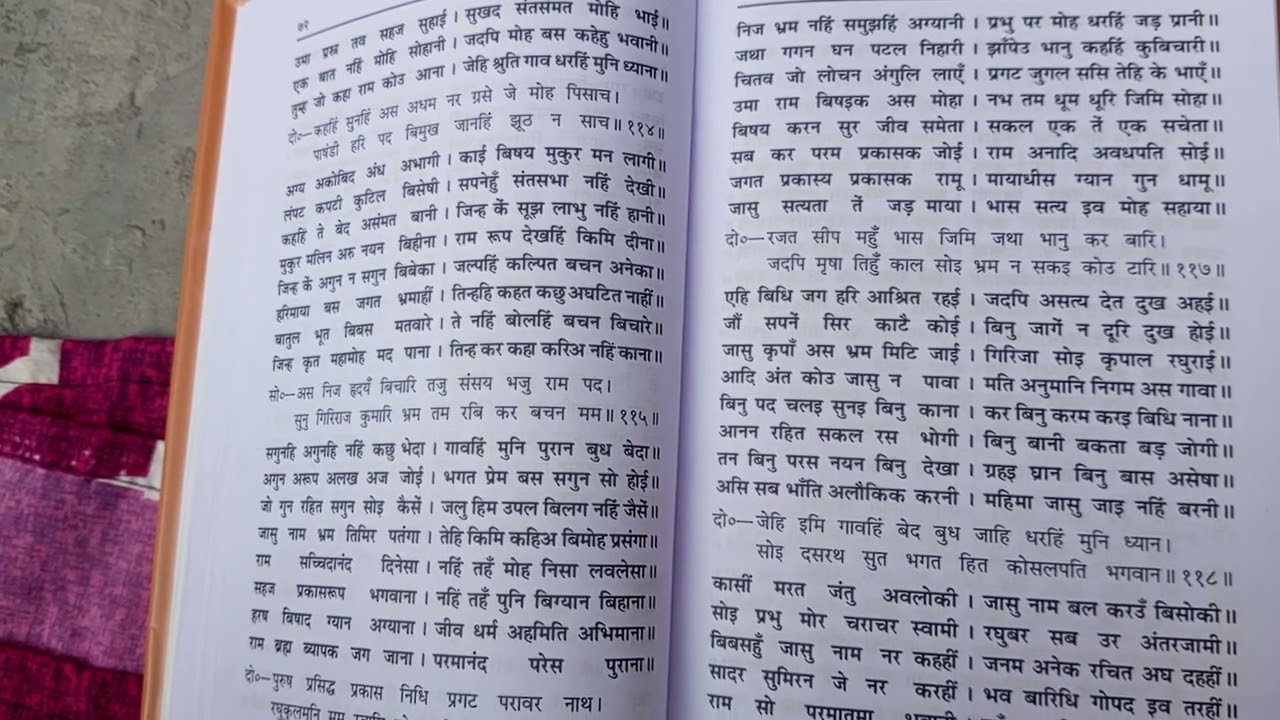 ७२
उमा प्रस्न तव सहज सुहाई। सुखद संतसंमत मोहि भाई॥
एक बात नहिं मोहि सोहानी। जदपि मोह बस कहेहु भवानी॥
तुम्ह जो कहा राम कोउ आना। जेहि श्रुति गाव धरहिं मुनि ध्याना॥
दो०—कहहिं सुनहिं अस अधम नर ग्रसे जे मोह पिसाच।
पाषंडी हरि पद बिमुख जानहिं झूठ न साच॥११४॥
अग्य अकोबिद अंध अभागी। काई बिषय मुकुर मन लागी॥
लंपट कपटी कुटिल बिसेषी। सपनेहुँ संतसभा नहिं देखी॥
कहहिं ते बेद असंमत बानी। जिन्ह कें सूझ लाभु नहिं हानी॥
मुकुर मलिन अरु नयन बिहीना। राम रूप देखहिं किमि दीना॥
जिन्ह कें अगुन न सगुन बिबेका। जल्पहिं कल्पित बचन अनेका॥
हरिमाया बस जगत भ्रमाहीं। तिन्हहि कहत कछु अघटित नाहीं॥
बातुल भूत बिबस मतवारे। ते नहिं बोलहिं बचन बिचारे॥
जिन्ह कृत महामोह मद पाना। तिन्ह कर कहा करिअ नहिं काना॥
सो०—अस निज हृदयँ बिचारि तजु संसय भजु राम पद।
सुनु गिरिराज कुमारि भ्रम तम रबि कर बचन मम॥११५॥
सगुनहि अगुनहि नहिं कछु भेदा। गावहिं मुनि पुरान बुध बेदा॥
अगुन अरूप अलख अज जोई। भगत प्रेम बस सगुन सो होई॥
जो गुन रहित सगुन सोइ कैसें। जलु हिम उपल बिलग नहिं जैसें॥
जासु नाम भ्रम तिमिर पतंगा। तेहि किमि कहिअ बिमोह प्रसंगा॥
राम सच्चिदानंद दिनेसा। नहिं तहँ मोह निसा लवलेसा॥
सहज प्रकासरूप भगवाना। नहिं तहँ पुनि बिग्यान बिहाना॥
हरष बिषाद ग्यान अग्याना। जीव धर्म अहमिति अभिमाना॥
राम ब्रह्म ब्यापक जग जाना। परमानंद परेस पुराना॥
दो०—पुरुष प्रसिद्ध प्रकास निधि प्रगट परावर नाथ।
रघुकुलमनि मम
निज भ्रम नहिं समुझहिं अग्यानी। प्रभु पर मोह धरहिं जड़ प्रानी॥
जथा गगन घन पटल निहारी। झाँपेउ भानु कहहिं कुबिचारी॥
चितव जो लोचन अंगुलि लाएँ। प्रगट जुगल ससि तेहि के भाएँ॥
उमा राम बिषइक अस मोहा। नभ तम धूम धूरि जिमि सोहा॥
बिषय करन सुर जीव समेता। सकल एक तें एक सचेता॥
सब कर परम प्रकासक जोई। राम अनादि अवधपति सोई॥
जगत प्रकास्य प्रकासक रामू। मायाधीस ग्यान गुन धामू॥
जासु सत्यता तें जड़ माया। भास सत्य इव मोह सहाया॥
दो०—रजत सीप महुँ भास जिमि जथा भानु कर बारि।
जदपि मृषा तिहुँ काल सोइ भ्रम न सकइ कोउ टारि॥११७॥
एहि बिधि जग हरि आश्रित रहई। जदपि असत्य देत दुख अहई॥
जौं सपनें सिर काटै कोई। बिनु जागें न दूरि दुख होई॥
जासु कृपाँ अस भ्रम मिटि जाई। गिरिजा सोइ कृपाल रघुराई॥
आदि अंत कोउ जासु न पावा। मति अनुमानि निगम अस गावा॥
बिनु पद चलइ सुनइ बिनु काना। कर बिनु करम करइ बिधि नाना॥
आनन रहित सकल रस भोगी। बिनु बानी बकता बड़ जोगी॥
तन बिनु परस नयन बिनु देखा। ग्रहइ घ्रान बिनु बास असेषा॥
असि सब भाँति अलौकिक करनी। महिमा जासु जाइ नहिं बरनी॥
दो०—जेहि इमि गावहिं बेद बुध जाहि धरहिं मुनि ध्यान।
सोइ दसरथ सुत भगत हित कोसलपति भगवान॥११८॥
कासीं मरत जंतु अवलोकी। जासु नाम बल करउँ बिसोकी॥
सोइ प्रभु मोर चराचर स्वामी। रघुबर सब उर अंतरजामी॥
बिबसहुँ जासु नाम नर कहहीं। जनम अनेक रचित अघ दहहीं॥
सादर सुमिरन जे नर करहीं। भव बारिधि गोपद इव तरहीं॥
राम सो परमातमा भवानी।